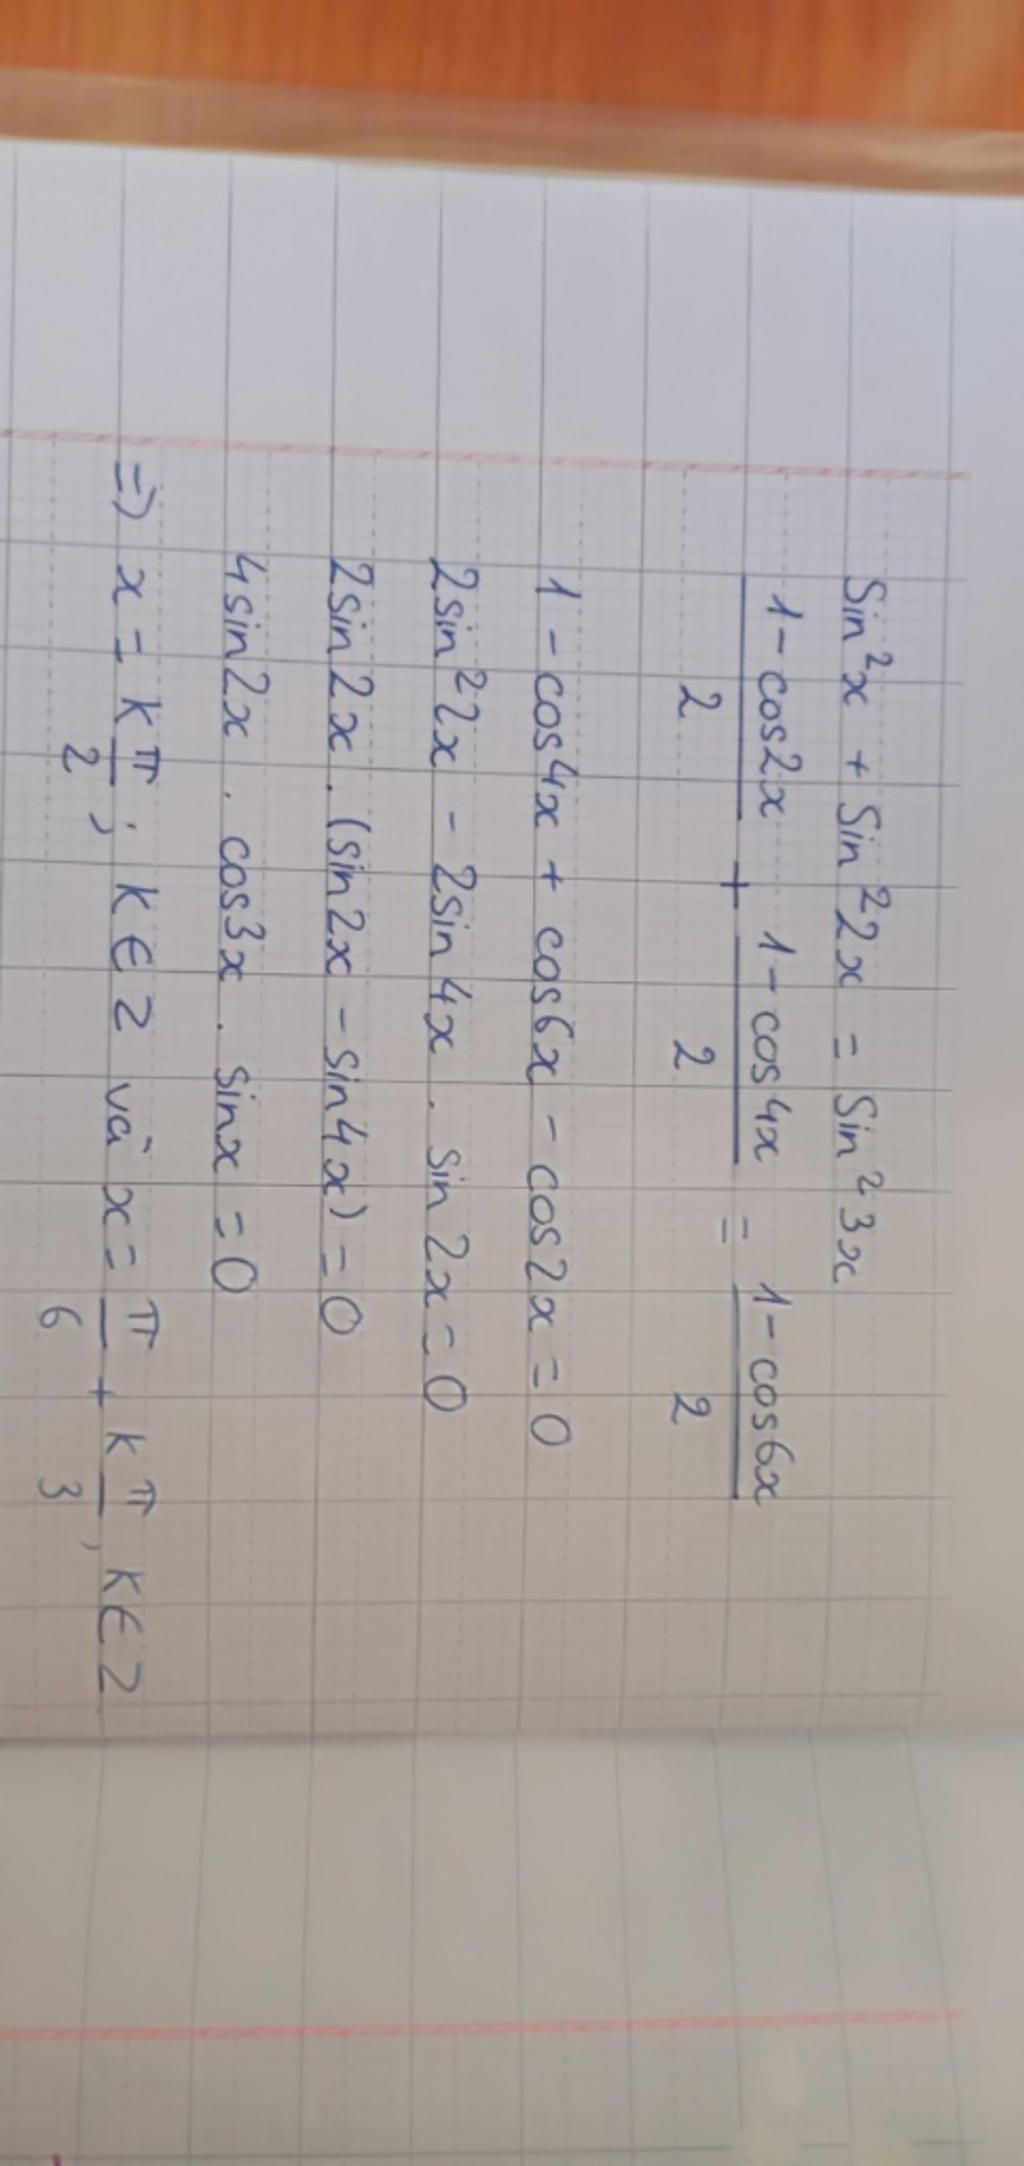 Sin²x + Sin²2x = Sin²3x
(1-cos2x)/2 + (1-cos4x)/2 = (1-cos6x)/2
1 - cos4x + cos6x - cos2x = 0
2sin²2x - 2sin4x . sin2x = 0
2sin2x . (sin2x - sin4x) = 0
4sin2x . cos3x . sinx = 0
=> x = k π/2 ; k ∈ Z và x = π/6 + k π/3 , k ∈ Z